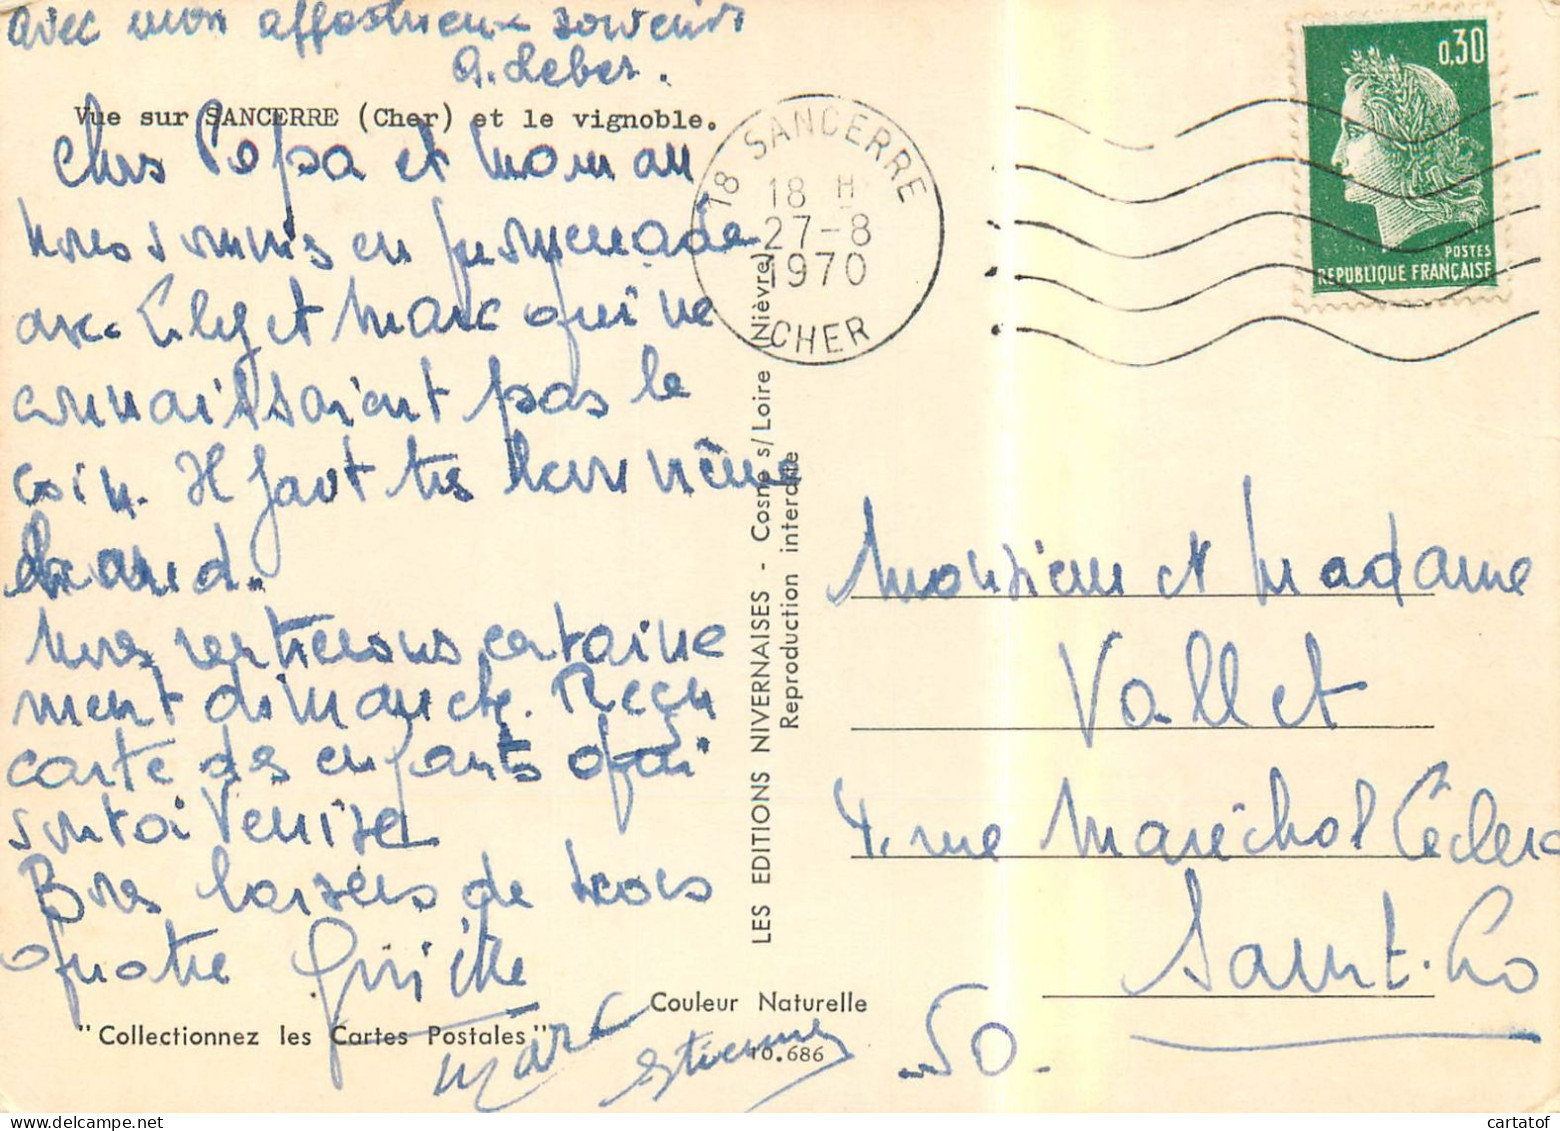 avec mon affectueux souvenir
A. Leber.
Vue sur SANCERRE (Cher) et le vignoble.
Chers Papa et Maman
Nous sommes en promenade
avec Lily et Marc qui ne
connaissaient pas le
coin. Il fait très beau même
chaud.
Nous rentrerons certaine
ment dimanche. Reçu
carte des enfants qui
sont à Venise
Bons baisers de tous
quatre
Marc
Etienne
"Collectionnez les Cartes Postales"
Couleur Naturelle
10.686
LES EDITIONS NIVERNAISES - Cosne s/ Loire (Nièvre)
Reproduction interdite
18 SANCERRE
18 H
27-8
1970
CHER
0,30
POSTES
REPUBLIQUE FRANÇAISE
Monsieur et Madame
Vallet
4. rue Maréchal Leclerc
Saint. Lo
50.
cartatof